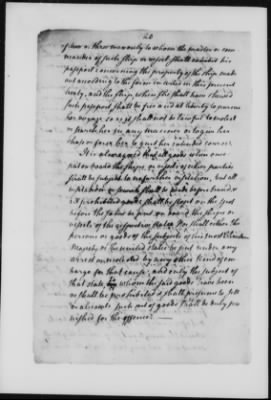 20
of two or three men only to whom the master or com
mander of such ship or vessel shall exhibit his
passport concerning the property of the ship made
out according to the form inserted in this present
treaty, and the ship, when she shall have shewed
such passport shall be free and at liberty to pursue
her voyage so as it shall not be lawful to molest
or search her in any manner or to give her
chase or force her to quit her intended course.
It is also agreed that all goods when once
put on board the ships or vessels of either parties
shall be subject to no further visitation, but all
visitation or search shall be made beforehand &
all prohibited goods shall be stopt on the spot
before the same be put on board the ships or
vessels of the respective States. Nor shall either the
persons or goods of the subjects of his most Christian
Majesty or the united states be put under any
arrest or molested by any other kind of em
bargo for that cause, and only the subject of
that state, by whom the said goods have been
or shall be prohibited & shall presume to sell
or alienate such sort of goods shall be duly pu
nished for the offence.